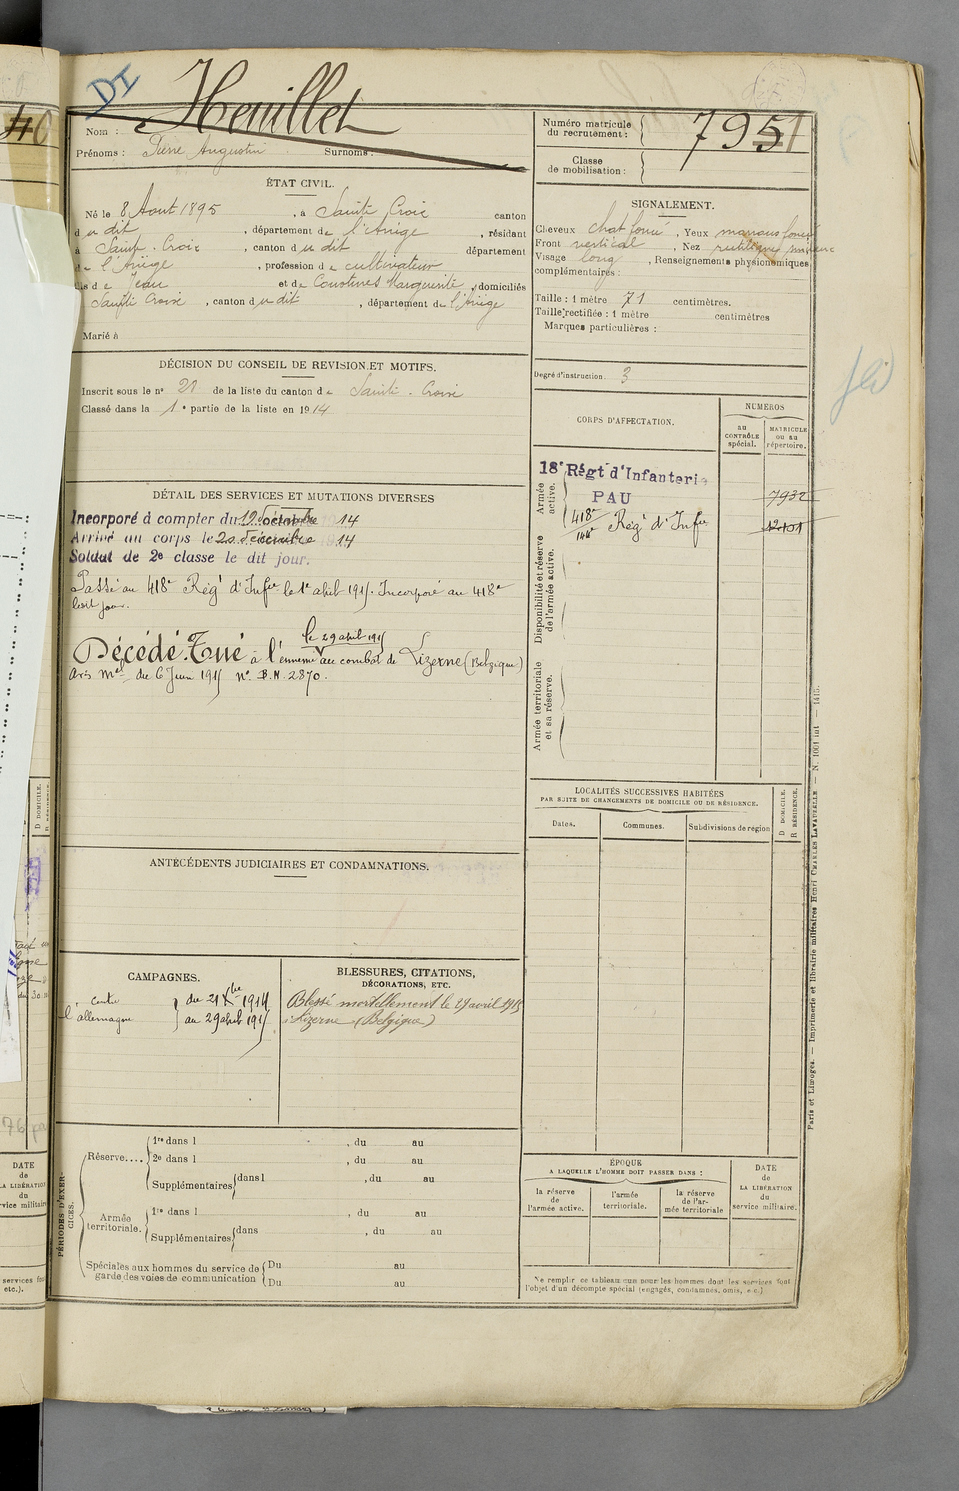 DI
Heuillet
Nom :
Prénoms : Pierre Augustin Surnoms :
Numéro matricule
du recrutement : 795
Classe
de mobilisation :
ÉTAT CIVIL.
Né le 8 Aout 1895, à Sainte Croix canton
du dit, département de l'Ariège, résidant
à Sainte-Croix, canton du dit département
de l'Ariège, profession de cultivateur
fils de Jean et de Courtines Marguerite, domiciliés
Sainte Croix, canton du dit, département de l'Ariège
Marié à
SIGNALEMENT.
Cheveux chat foncé, Yeux
Front vertical, Nez rectiligne
Visage long, Renseignements physionomiques
complémentaires :
Taille : 1 mètre 71 centimètres.
Taille rectifiée : 1 mètre centimètres
Marques particulières :
Degré d'instruction. 3
DÉCISION DU CONSEIL DE REVISION ET MOTIFS.
Inscrit sous le n° 21 de la liste du canton de Sainte-Croix
Classé dans la 1e partie de la liste en 1914
DÉTAIL DES SERVICES ET MUTATIONS DIVERSES
Incorporé à compter du 19 décembre 14
Arrivé au corps le 20 décembre 14
Soldat de 2e classe le dit jour.
Passé au 418e Régt d'Infie le 1er abril 1915. Incorporé au 418e
ledit jour.
le 29 abril 1915
Décédé. Tué à l'ennemi au combat de Lizerne (Belgique)
avis mel du 6 Juin 1915 n° B.N. 2870.
CORPS D'AFFECTATION.
NUMÉROS
au
CONTRÔLE
spécial.
MATRICULE
ou au
répertoire.
Armée
active.
18e Régt d'Infanterie
PAU
7932
418e
144e
Régt d'Infie
12101
Disponibilité et réserve
de l'armée active.
Armée territoriale
et sa réserve.
LOCALITÉS SUCCESSIVES HABITÉES
PAR SUITE DE CHANGEMENTS DE DOMICILE OU DE RÉSIDENCE.
Dates.
Communes.
Subdivisions de région
D DOMICILE.
R RÉSIDENCE.
ANTÉCÉDENTS JUDICIAIRES ET CONDAMNATIONS.
CAMPAGNES.
Contre
l'allemagne
du 21 Xbre 1914
au 29 abril 1915
BLESSURES, CITATIONS,
DÉCORATIONS, ETC.
Blessé mortellement le 29 avril 1915
à Lizerne (Belgique)
PÉRIODES D'EXER-
CICES.
Réserve....
1re dans l , du au
2e dans l , du au
Supplémentaires dans l , du au
Armée
territoriale.
1re dans l , du au
Supplémentaires dans , du au
Spéciales aux hommes du service de
garde des voies de communication
Du au
Du au
ÉPOQUE
A LAQUELLE L'HOMME DOIT PASSER DANS :
la réserve
de
l'armée active.
l'armée
territoriale.
la réserve
de l'ar-
mée territoriale
DATE
de
LA LIBÉRATION
du
service militaire.
Ne remplir ce tableau que pour les hommes dont les services font
l'objet d'un décompte spécial (engagés, condamnés, omis, etc.)
Paris et Limoges. — Imprimerie et librairie militaires Henri CHARLES LAVAUZELLE — N. 1001 int — 1415.
D DOMICILE.
DATE
de
LA LIBÉRATION
du
service militaire
services font
etc.).